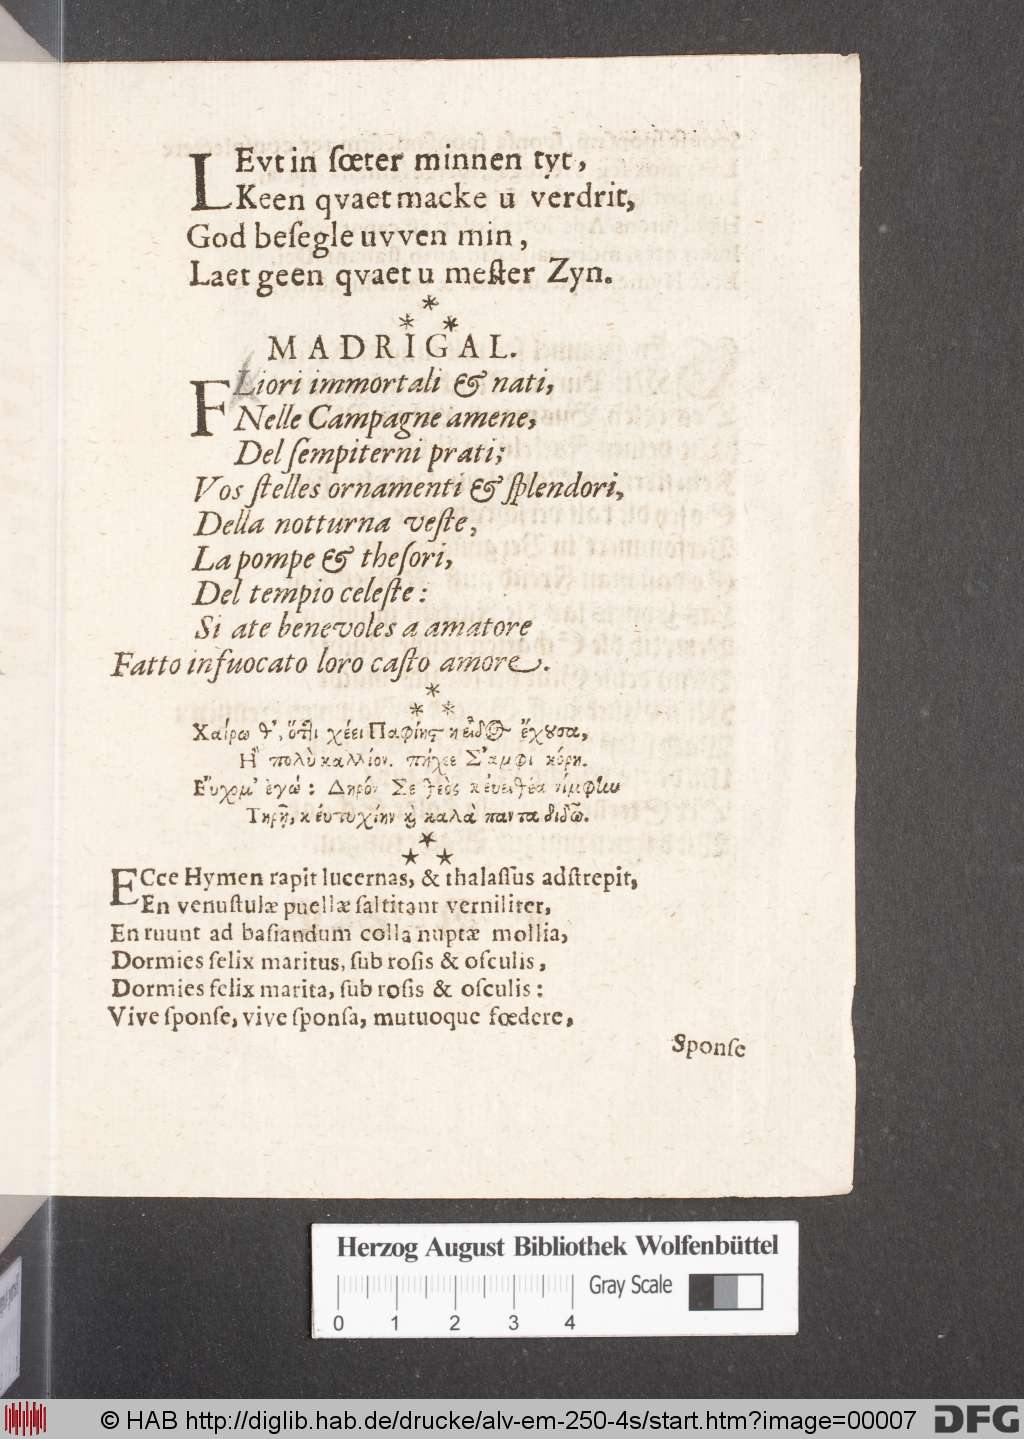 LEvt in sœter minnen tyt,
Keen qvaet macke ũ verdrit,
God beſegle uvven min,
Laet geen qvaet u meſter Zyn.
MADRIGAL.
FLiori immortali & nati,
Nelle Campagne amene,
Del ſempiterni prati;
Vos ſtelles ornamenti & ſplendori,
Della notturna veſte,
La pompe & theſori,
Del tempio celeſte:
Si ate benevoles a amatore
Fatto infuocato loro caſto amore.
Χαίρω θ', ὅτι χέει Παφίης ἔχουσα,
Ἢ πολὺ καλλίον. Σ' αμφι κόρη.
Εὔχομ' ἐγώ: Δηρόν Σε θεὸς
Τηρῇ, κ ευτυχίην καλὰ παντα διδῶ.
ECce Hymen rapit lucernas, & thalaſſus adſtrepit,
En venuſtulæ puellæ ſaltitant verniliter,
En ruunt ad baſiandum colla nuptæ mollia,
Dormies felix maritus, ſub roſis & oſculis,
Dormies felix marita, ſub roſis & oſculis:
Vive ſponſe, vive ſponſa, mutuoque fœdere,
Sponſe
Herzog August Bibliothek Wolfenbüttel
Gray Scale
0 1 2 3 4
© HAB http://diglib.hab.de/drucke/alv-em-250-4s/start.htm?image=00007
DFG